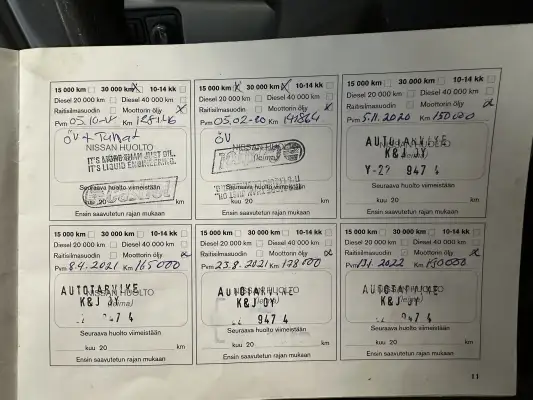 15 000 km 30 000 km 10-14 kk
Diesel 20 000 km Diesel 40 000 km
Raitisilmasuodin Moottorin öljy
Pvm Km
ÖV +
NISSAN HUOLTO
IT'S MORE THAN JUST OIL.
IT'S LIQUID ENGINEERING.
Seuraava huolto viimeistään
kuu 20 km
Ensin saavutetun rajan mukaan
15 000 km 30 000 km 10-14 kk
Diesel 20 000 km Diesel 40 000 km
Raitisilmasuodin Moottorin öljy
Pvm 05.02-20 Km 141864
ÖV
NISSAN HUOLTO
(leima)
Seuraava huolto viimeistään
kuu 20 km
Ensin saavutetun rajan mukaan
15 000 km 30 000 km 10-14 kk
Diesel 20 000 km Diesel 40 000 km
Raitisilmasuodin Moottorin öljy
Pvm 5.11.2020 Km 150000
AUTOTARVIKE
K&J OY
947 4
Seuraava huolto viimeistään
kuu 20 km
Ensin saavutetun rajan mukaan
15 000 km 30 000 km 10-14 kk
Diesel 20 000 km Diesel 40 000 km
Raitisilmasuodin Moottorin öljy
Pvm 8.4.2021 Km 165000
AUTOTARVIKE
NISSAN HUOLTO
K&J OY
(leima)
947 4
Seuraava huolto viimeistään
kuu 20 km
Ensin saavutetun rajan mukaan
15 000 km 30 000 km 10-14 kk
Diesel 20 000 km Diesel 40 000 km
Raitisilmasuodin Moottorin öljy
Pvm 23.8.2021 Km 178000
AUTOTARVIKE
NISSAN HUOLTO
K&J OY
947 4
Seuraava huolto viimeistään
kuu 20 km
Ensin saavutetun rajan mukaan
15 000 km 30 000 km 10-14 kk
Diesel 20 000 km Diesel 40 000 km
Raitisilmasuodin Moottorin öljy
Pvm Km 190000
AUTOTARVIKE
NISSAN HUOLTO
K&J OY
(leima)
947 4
Seuraava huolto viimeistään
kuu 20 km
Ensin saavutetun rajan mukaan
11